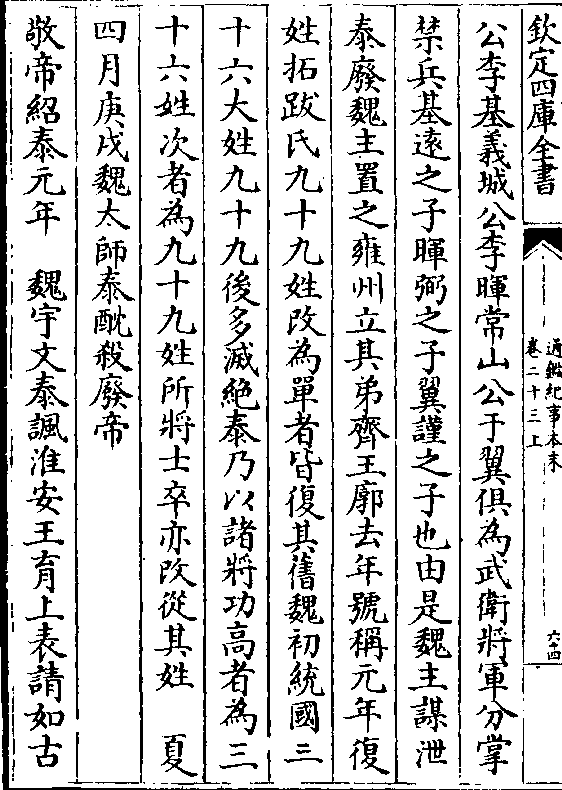 欽定四庫全書
通鑑紀事本末
卷二十三上
六十四
公李基義城公李暉常山公于翼俱為武衛將軍分掌
禁兵基遠之子暉弼之子翼謹之子也由是魏主謀泄
泰廢魏主置之雍州立其弟齊王廓去年號稱元年復
姓拓跋氏九十九姓改為單者皆復其舊魏初統國三
十六大姓九十九後多滅絕泰乃以諸將功高者為三
十六姓次者為九十九姓所將士卒亦改從其姓　夏
四月庚戌魏太師泰酖殺廢帝
敬帝紹泰元年　魏宇文泰諷淮安王育上表請如古